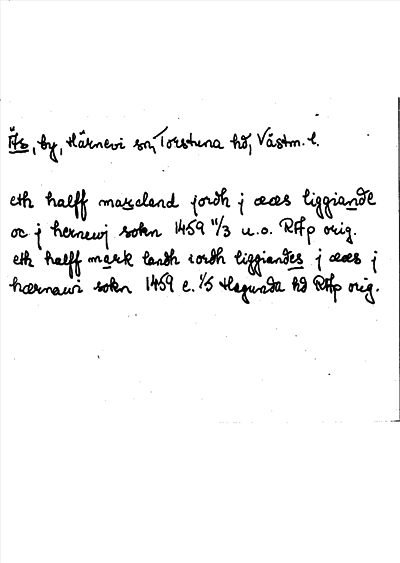 Äs, by, Härnevi sn, Torstuna hd, Västm. l.
eth halff marsceland jordh j ææs liggiande
oc j hernewj sokn 1459 11/3 u.o. RAp orig.
eth halff mark landh iordh liggiandes j ææs j
hærnæwi sokn 1459 e. 1/5 Hagunda hd RAp orig.